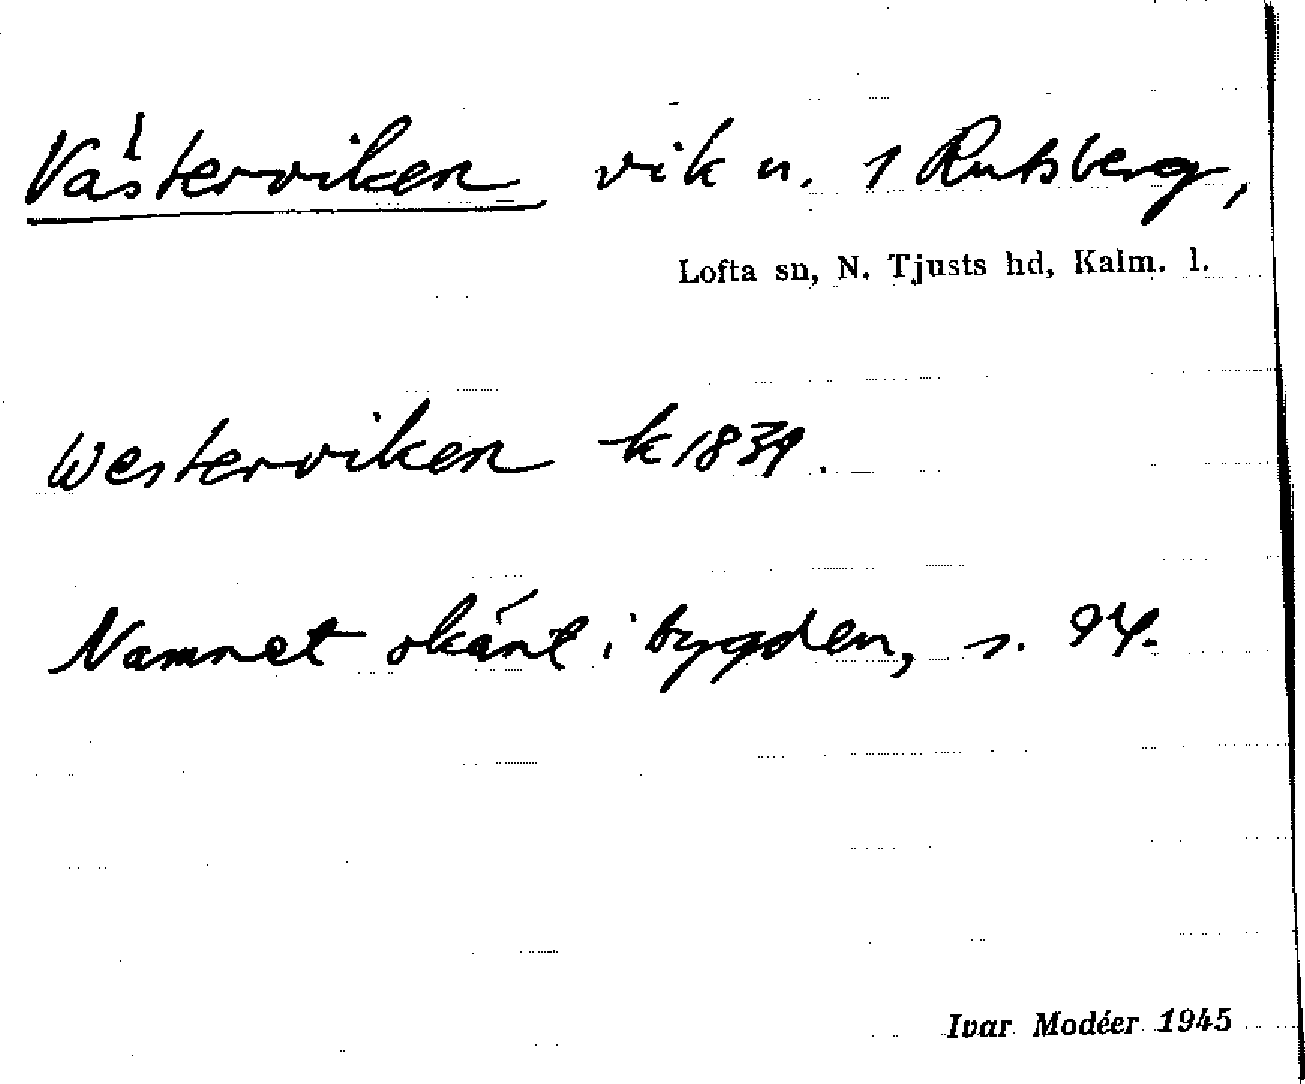 Västerviken vik u. 1 Rutsberg,
Lofta sn, N. Tjusts hd, Kalm. l.
Westerviken k 1839.
Namnet okänt i bygden, s. 94.
Ivar Modéer 1945